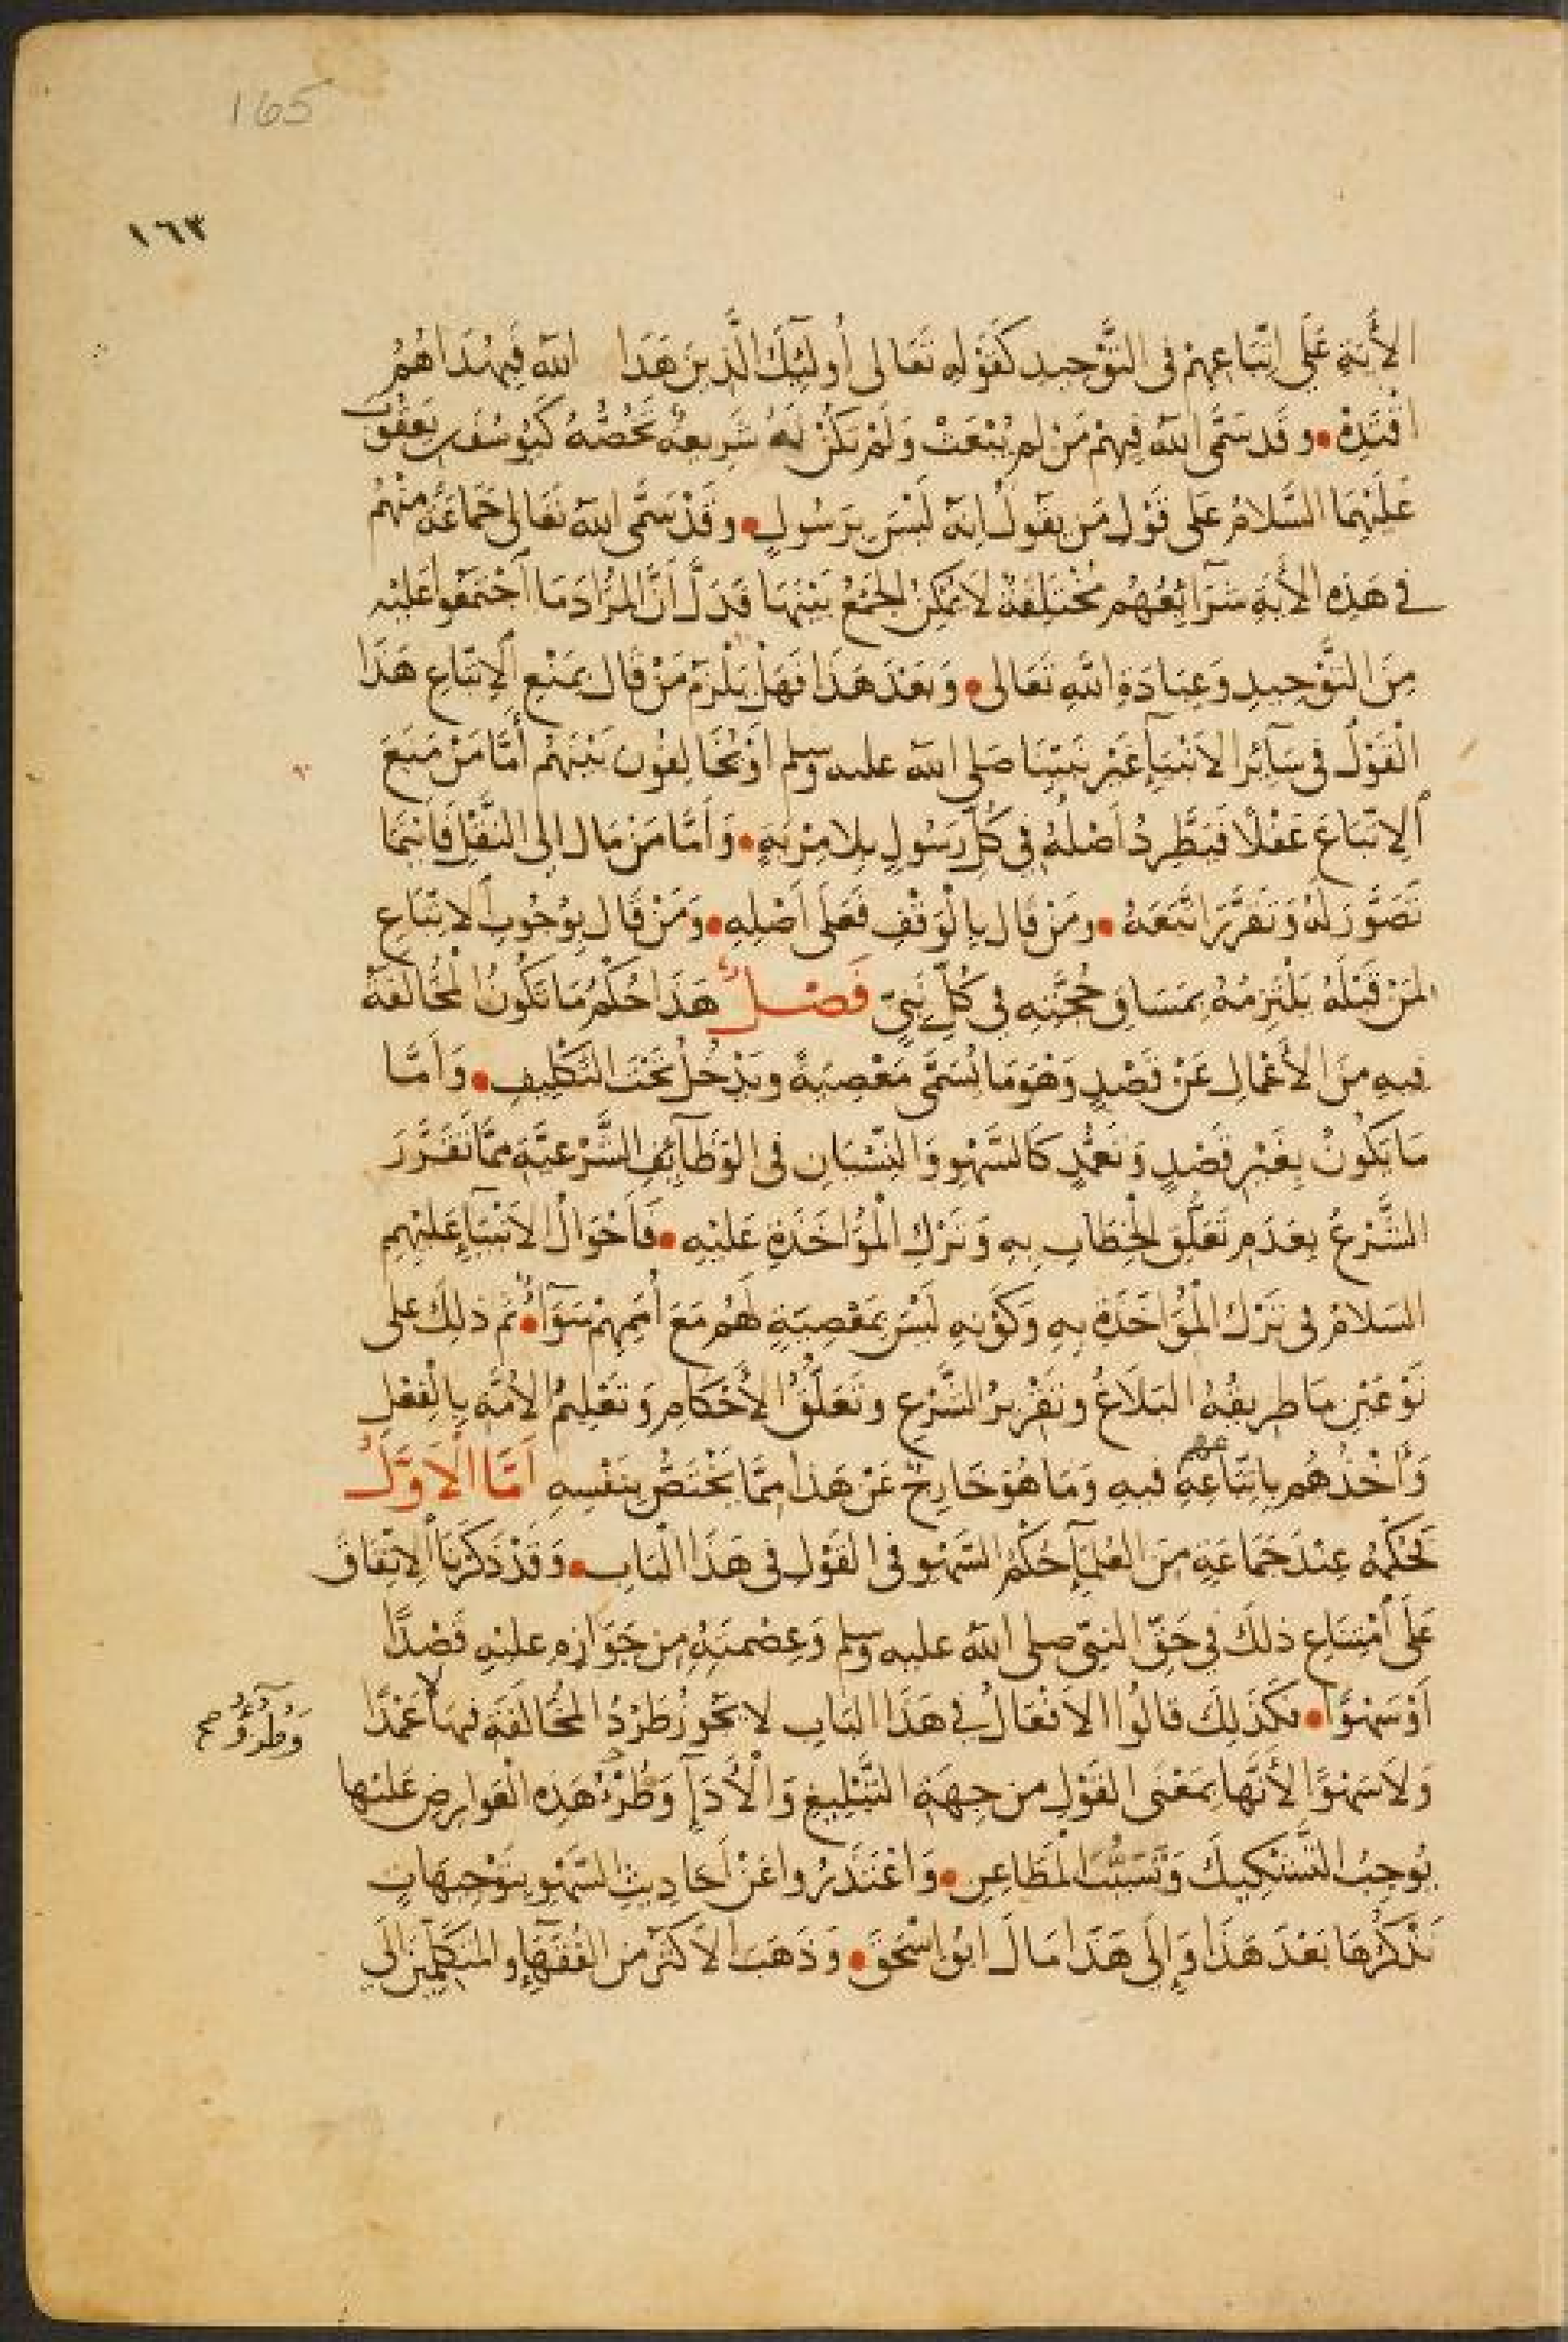 165
١٦٣
الأية على اتباعهم في التوحيد كقوله تعالى أولئك الذين هدا الله فبهداهم
اقتده • وقد سمى الله فيهم من لم يبعث ولم تكن له شريعة تخصه كيوسف بن يعقوب
عليهما السلام على قول من يقول انه ليس برسول • وقد سمى الله تعالى جماعة منهم
في هذه الأية شرآئعهم مختلفة لا يمكن الجمع بينها فدل أن المراد ما اجتمعوا عليه
من التوحيد وعبادة الله تعالى • وبعد هذا فهل يلزم من قال بمنع الاتباع هذا
القول في سآئر الأنبيآء غير نبينا صلى الله عليه وسلم أو يخالفون بينهم أما من منع
الاتباع عقلا فيطرد أصله في كل رسول بلا مرية • وأما من مال الى النقل فأينما
تصور له وتقرر اتبعه • ومن قال بالوقف فعلى أصله • ومن قال بوجوب الاتباع
لمن قبله يلتزمه بمساق حجته في كل نبي فصل هذا حكم ما تكون المخالفة
فيه من الأعمال عن قصد وهو ما يسمى معصية ويدخل تحت التكليف • وأما
ما يكون بغير قصد وتعمد كالسهو والنسيان في الوظآئف الشرعية مما تقرر
الشرع بعدم تعلق الخطاب به وترك المؤاخذة عليه • فأحوال الأنبيآء عليهم
السلام في ترك المؤاخذة به وكونه ليس بمعصية لهم مع أممهم سوآء • ثم ذلك على
نوعين ما طريقه البلاغ وتقرير الشرع وتعلق الأحكام وتعليم الأمة بالفعل
وأخذهم باتباعه فيه وما هو خارج عن هذا مما يختص بنفسه أما الأول
فحكمه عند جماعة من العلمآء حكم السهو في القول في هذا الباب • وقد ذكرنا الاتفاق
على امتناع ذلك في حق النبي صلى الله عليه وسلم وعصمته من جوازه عليه قصدا
أو سهوا • فكذلك قالوا الأفعال في هذا الباب لا يجوز طرد المخالفة فيها لا عمدا
وطروء صح
ولا سهوا لأنها بمعنى القول من جهة التبليغ والأدآء وطرؤ هذه العوارض عليها
يوجب التشكيك وتسبب المطاعن • واعتذروا عن أحاديث السهو بتوجيهات
نذكرها بعد هذا وإلى هذا مال ابو اسحق • وذهب الأكثر من الفقهآء والمتكلمين الى